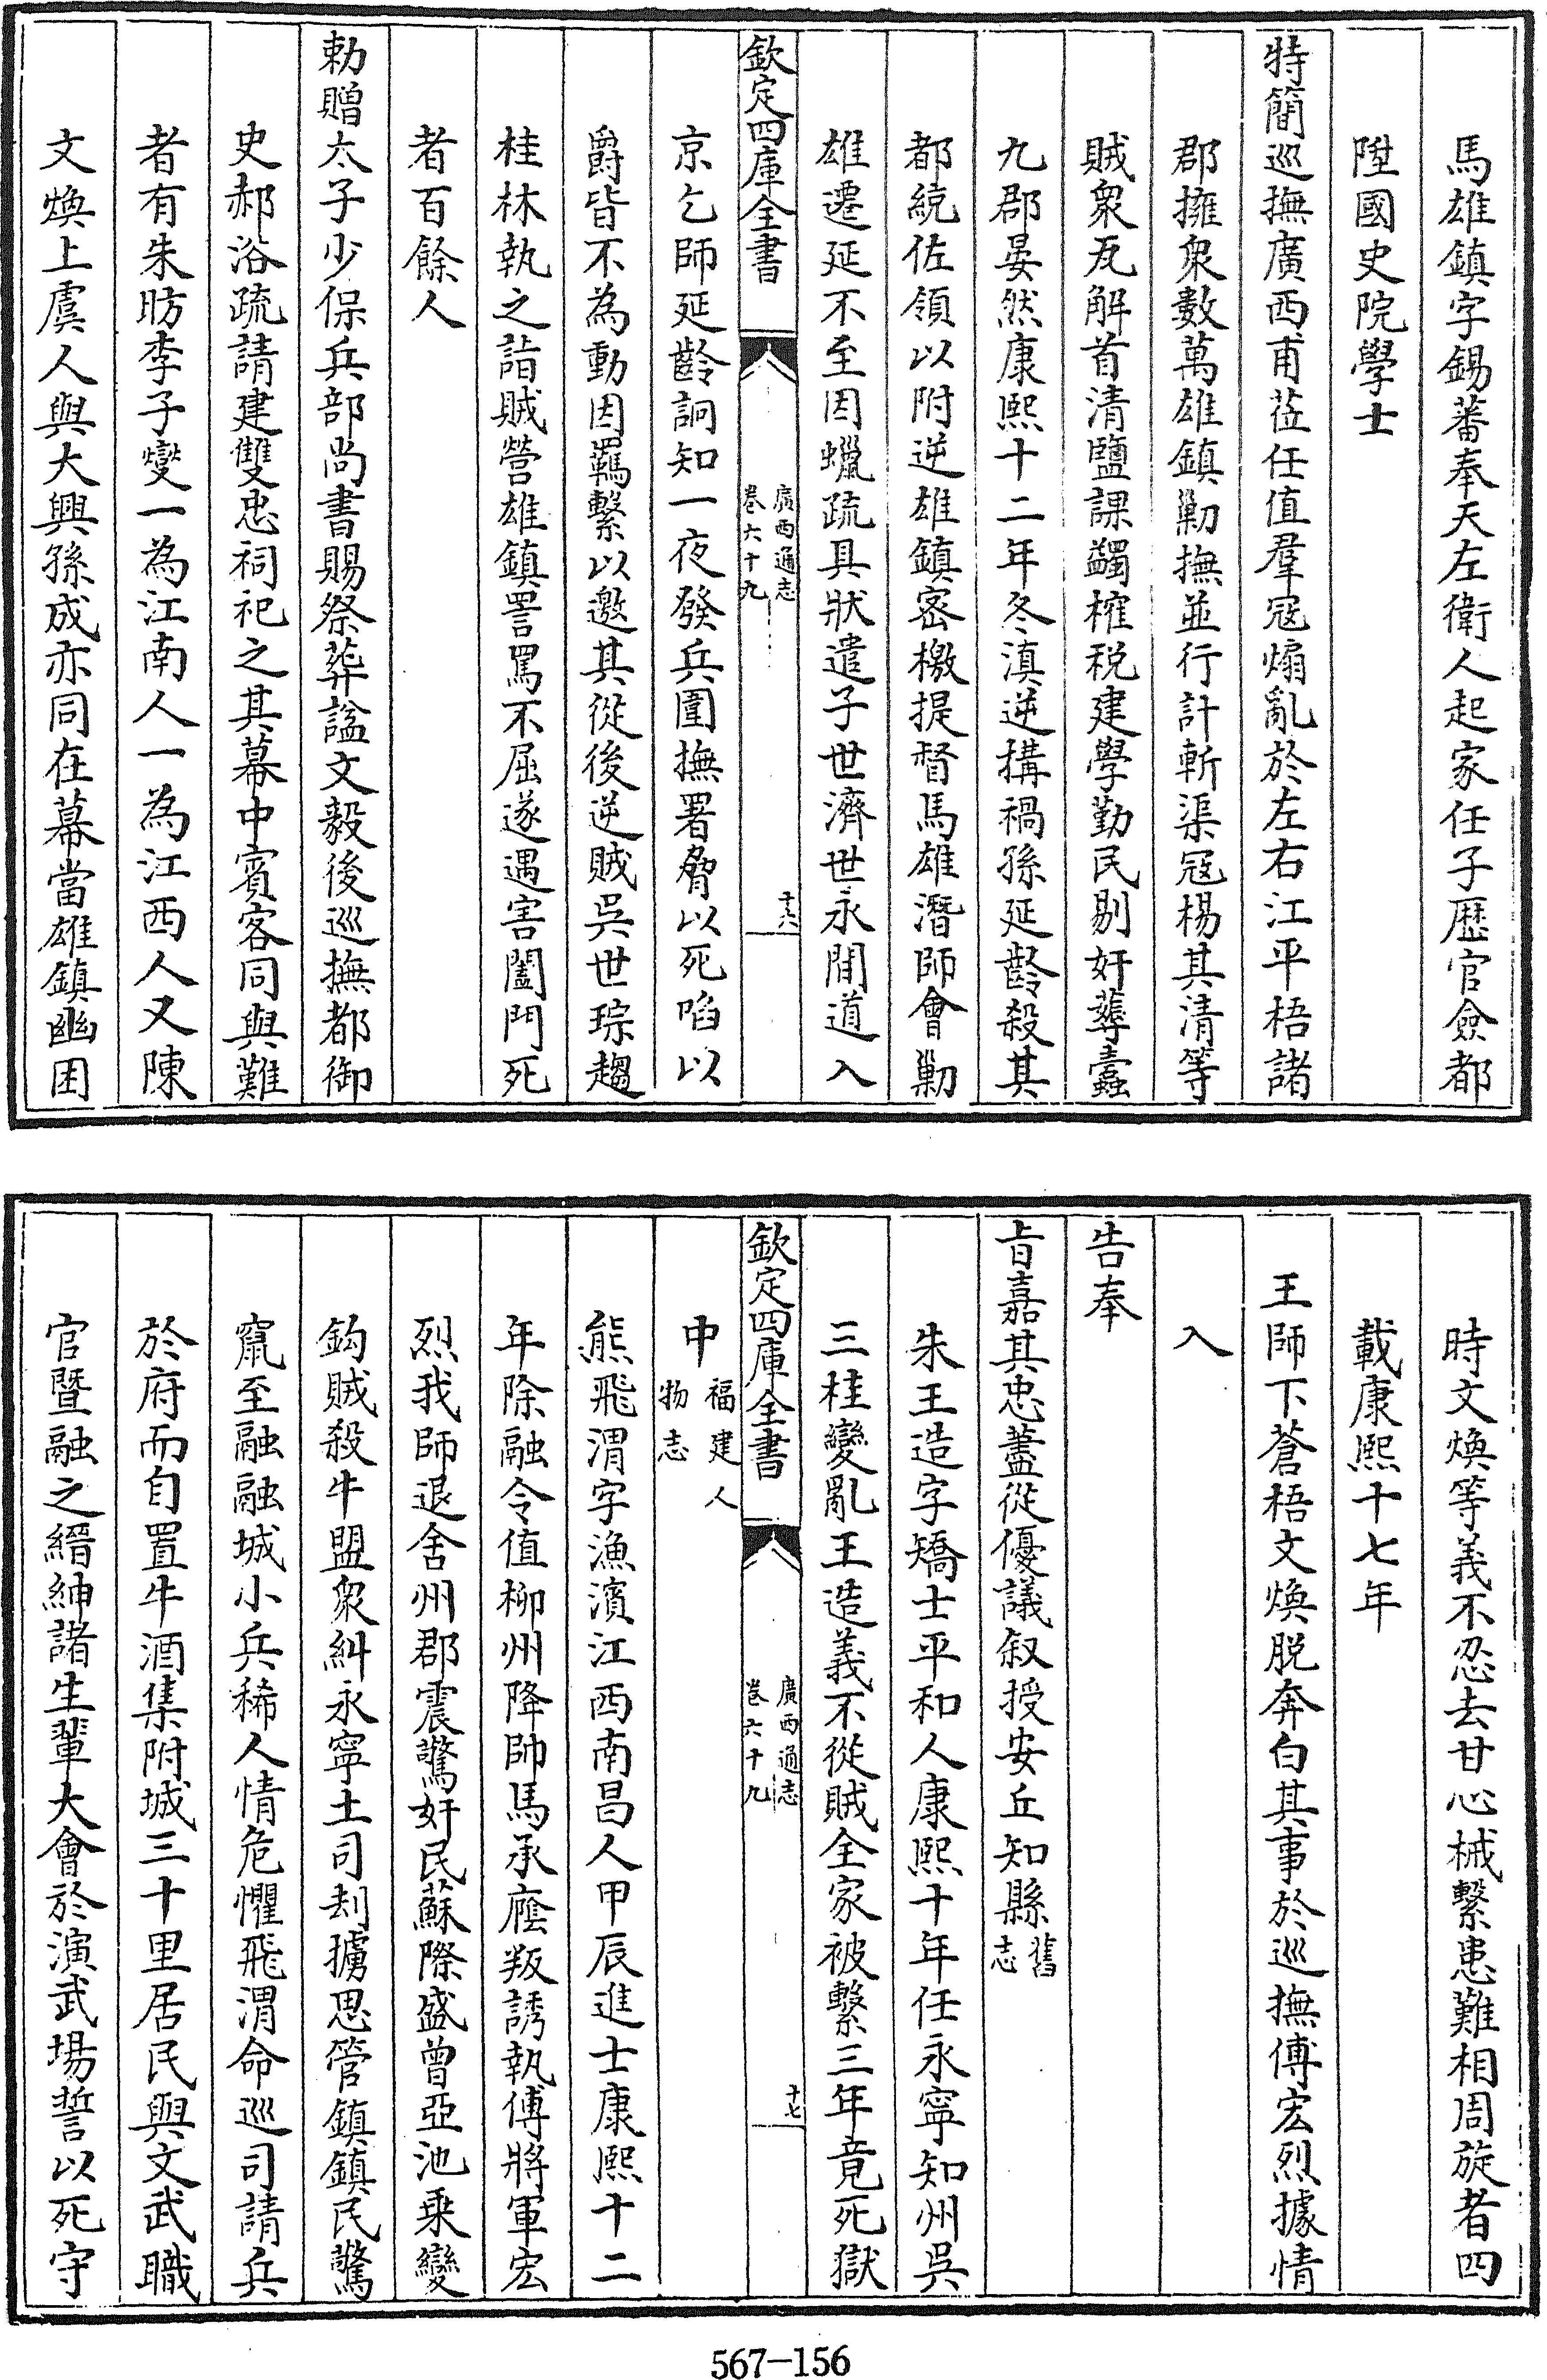 馬雄鎮字錫蕃奉天左衛人起家任子歴官僉都
陞國史院學士
特簡巡撫廣西甫莅任值羣冦煽亂於左右江平梧諸
郡擁衆數萬雄鎮勦撫並行計斬渠冦楊其清等
賊衆瓦解首清鹽課蠲榷税建學勤民剔奸薅蠹
九郡晏然康熙十二年冬滇逆搆禍孫延齡殺其
都統佐領以附逆雄鎮密檄提督馬雄潛師會勦
雄遷延不至因蠟疏具狀遣子世濟世永間道入
欽定四庫全書
廣西通志
卷六十九
十六
京乞師延齡詗知一夜發兵圍撫署脅以死啗以
爵皆不為動因羈繫以邀其從後逆賊吳世琮趨
桂林執之詣賊營雄鎮詈罵不屈遂遇害闔門死
者百餘人
勅贈太子少保兵部尚書賜祭葬諡文毅後巡撫都御
史郝浴疏請建雙忠祠祀之其幕中賓客同與難
者有朱昉李子燮一為江南人一為江西人又陳
文煥上虞人與大興孫成亦同在幕當雄鎮幽困
時文煥等義不忍去甘心械繫患難相周旋者四
載康熙十七年
王師下蒼梧文煥脱奔白其事於巡撫傅宏烈據情
入
告奉
旨嘉其忠藎從優議叙授安丘知縣舊志
朱王造字矯士平和人康熙十年任永寧知州吳
三桂變亂王造義不從賊全家被繫三年竟死獄
欽定四庫全書
廣西通志
卷六十九
十七
中福建人物志
熊飛渭字漁濱江西南昌人甲辰進士康熙十二
年除融令值柳州降帥馬承廕叛誘執傅將軍宏
烈我師退舍州郡震驚奸民蘇際盛曾亞池乗變
鈎賊殺牛盟衆糾永寧土司刦擄思管鎮鎮民驚
竄至融融城小兵稀人情危懼飛渭命巡司請兵
於府而自置牛酒集附城三十里居民與文武職
官暨融之縉紳諸生輩大會於演武場誓以死守
567-156